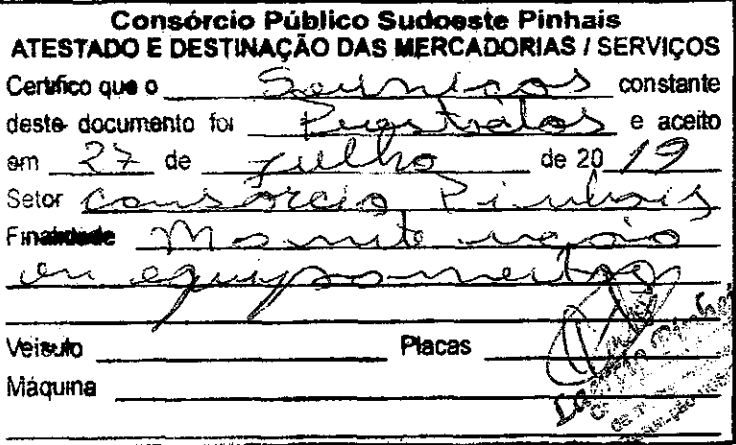 Consórcio Público Sudoeste Pinhais
ATESTADO E DESTINAÇÃO DAS MERCADORIAS / SERVIÇOS
Certifico que o Serviços constante
deste documento foi Prestados e aceito
em 27 de Julho de 20 19
Setor Consórcio Pinhais
Finalidade Manutenção
em equipamentos
Veículo Placas
Máquina